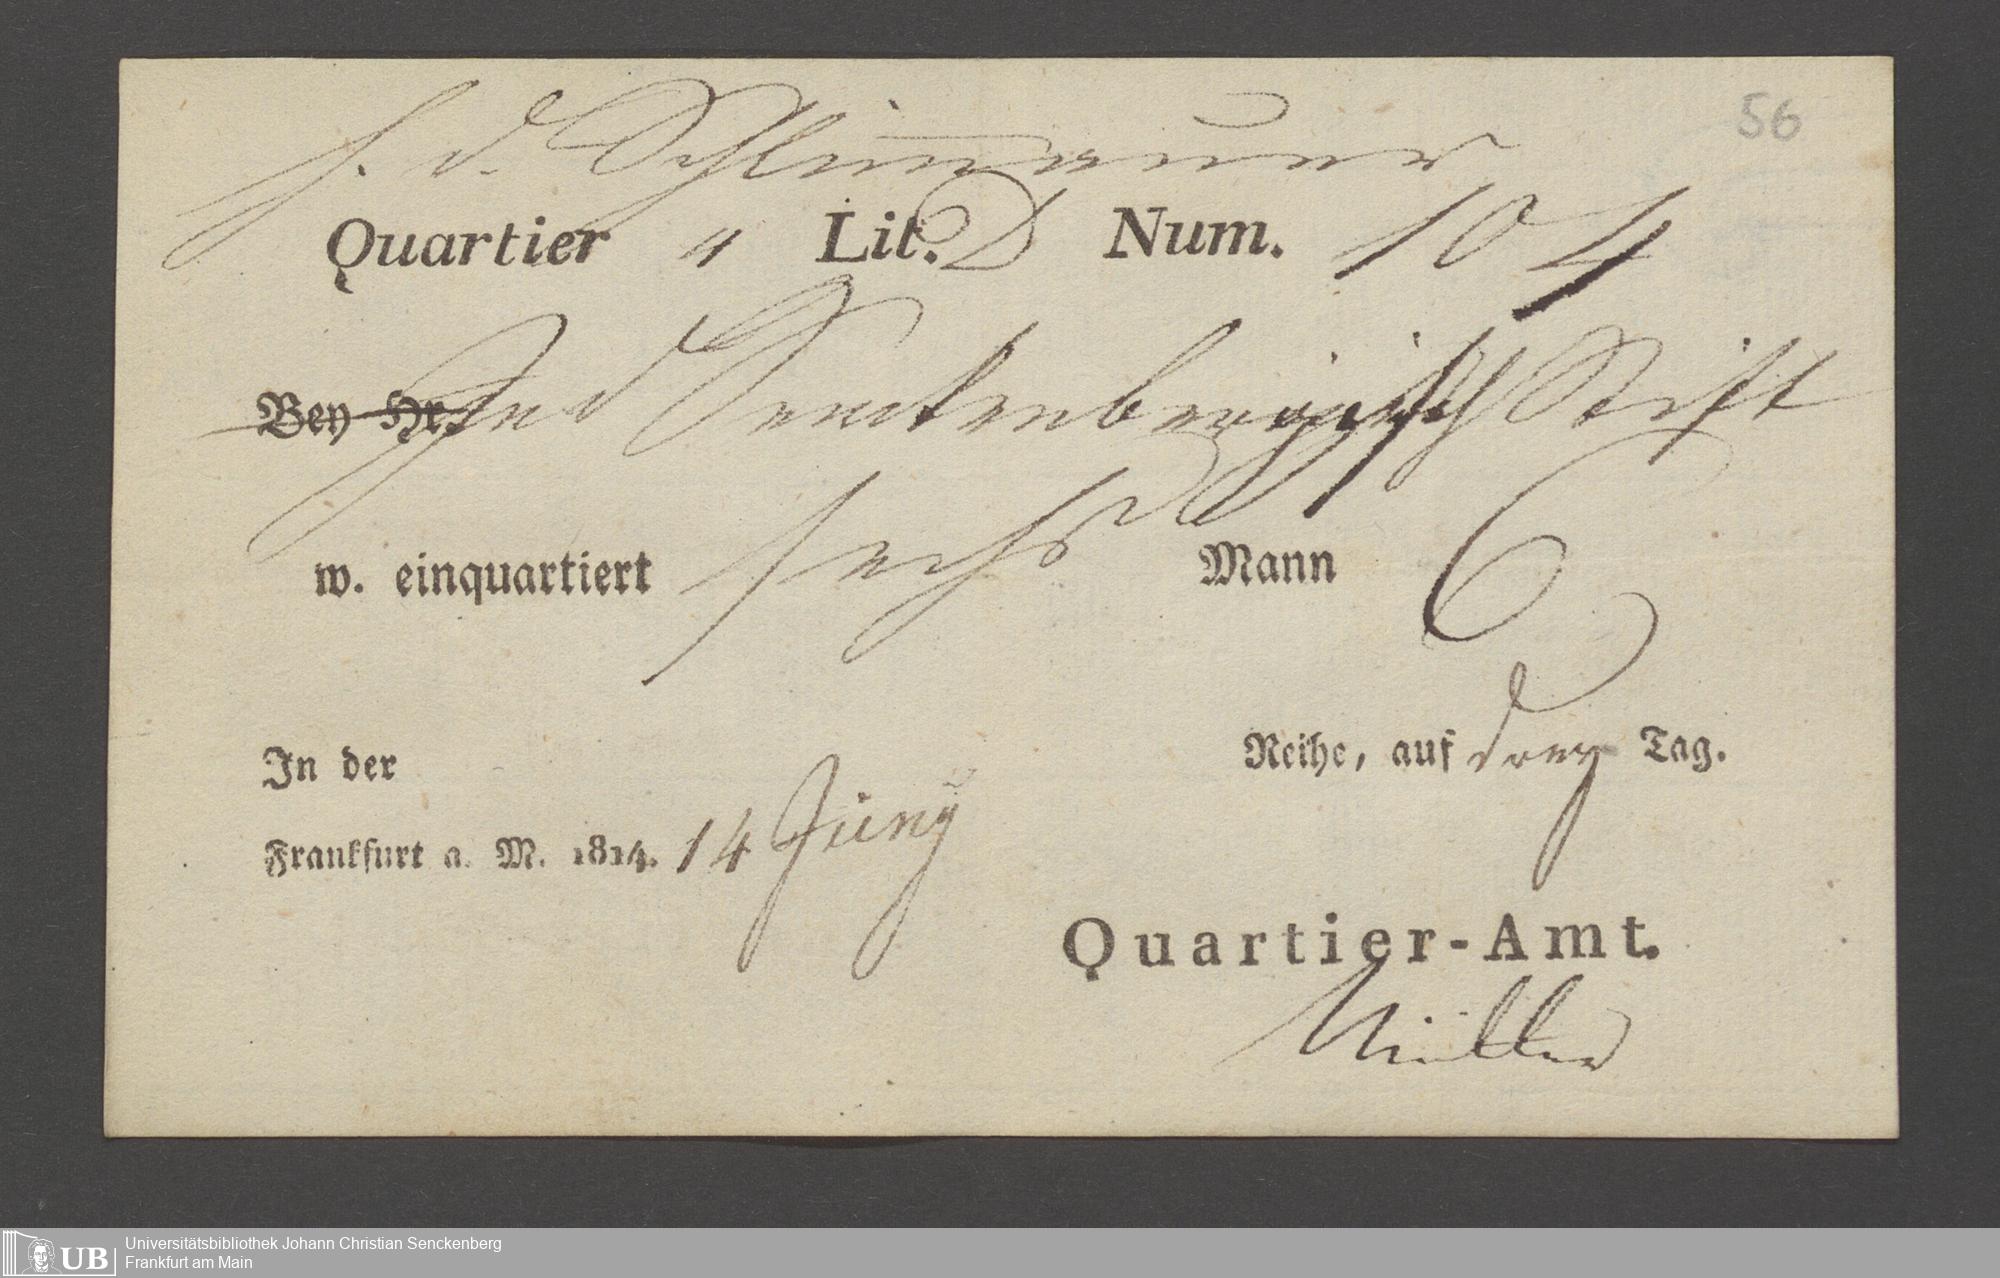 56
H. d. Schlimmauer
Quartier " Lit. D Num. 104
Bey Hr. In d Senckenbergisch Stift
w. einquartiert sechs Mann 6
In der Reihe, auf drey Tag.
Frankfurt a. M. 1814. 14 Juny
Quartier-Amt.
Müller
UB Universitätsbibliothek Johann Christian Senckenberg
Frankfurt am Main